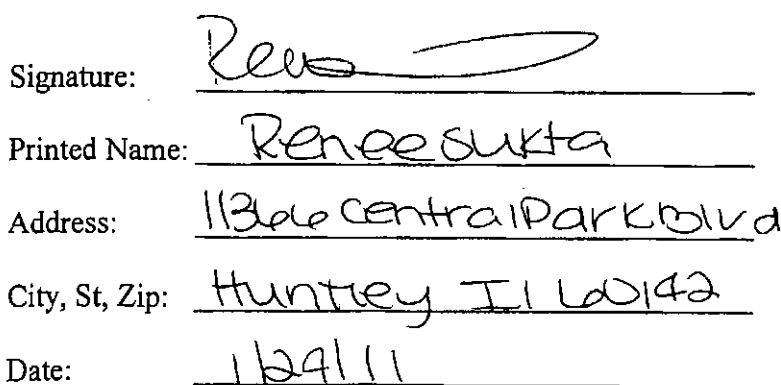 Signature: Renee
Printed Name: Renee Sukta
Address: 11366 Central Park Blvd
City, St, Zip: Huntley Il 60142
Date: 1/24/11